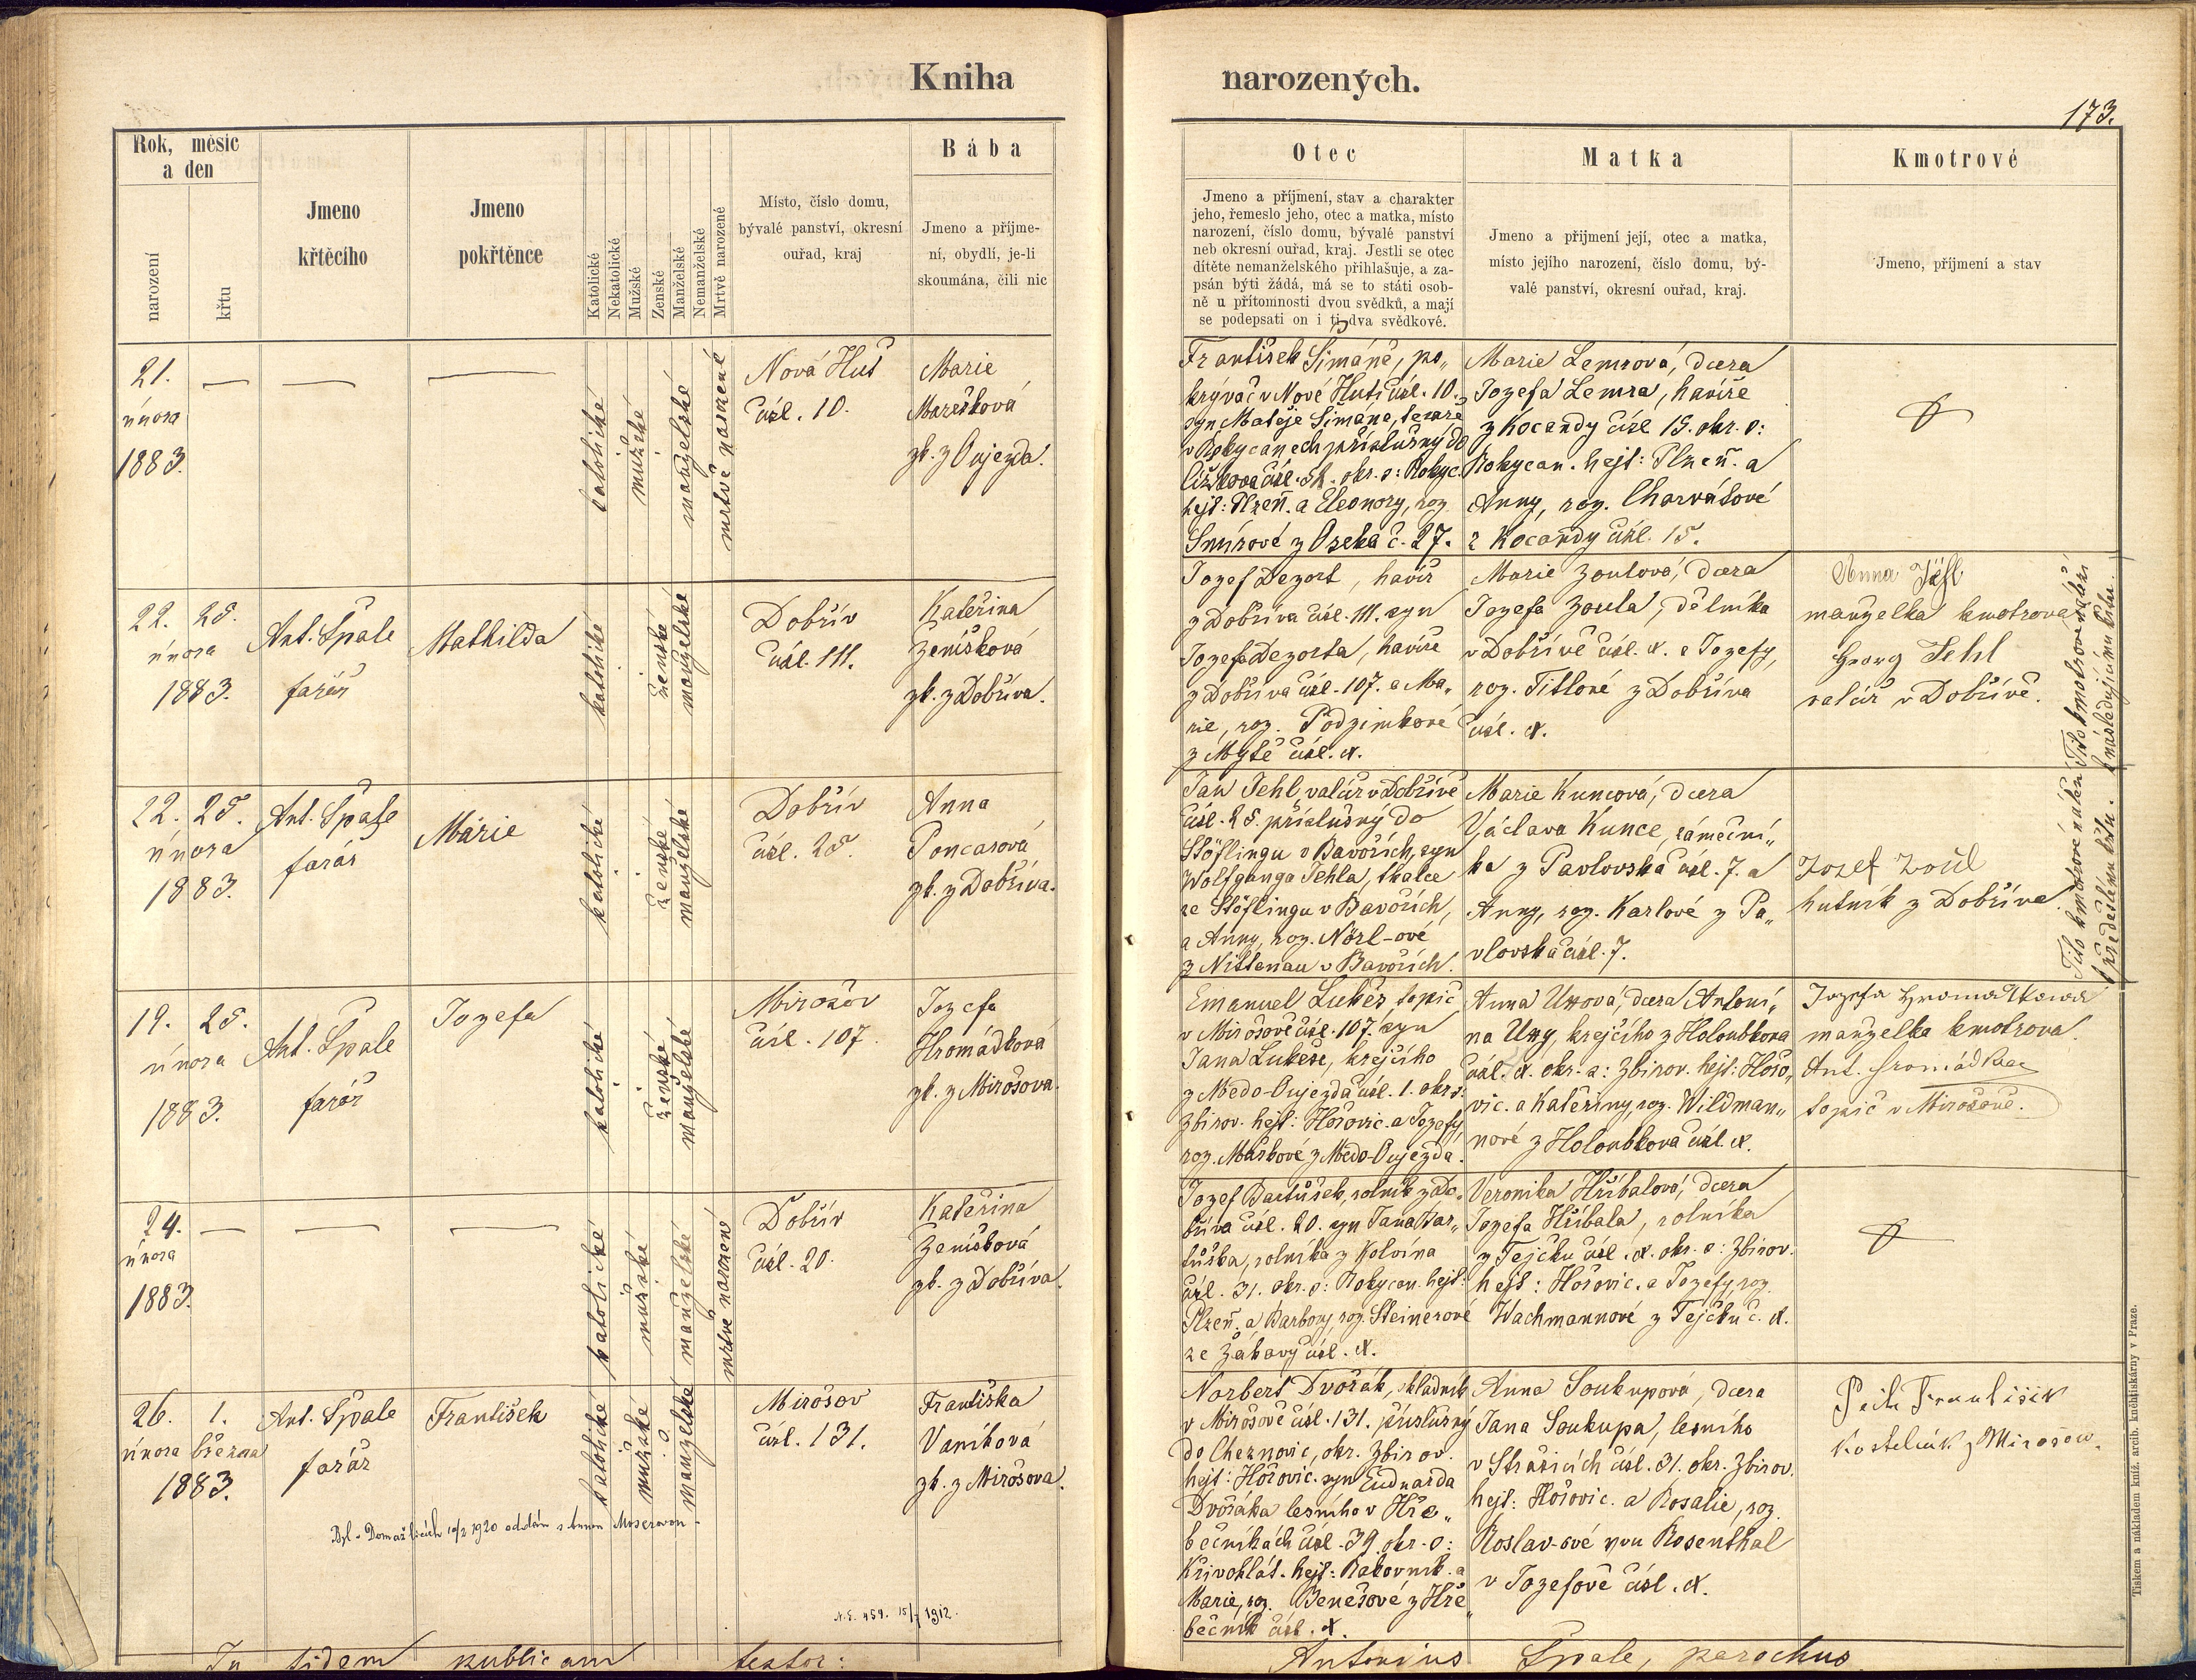 Kniha narozených.
173.
Rok, měsíc
a den
narození
křtu
Jmeno
křtěcího
Jmeno
pokřtěnce
Katolické
Nekatolické
Mužské
Ženské
Manželské
Nemanželské
Mrtvě narozené
Místo, číslo domu,
bývalé panství, okresní
ouřad, kraj
Bába
Jmeno a příjme-
ní, obydlí, je-li
skoumána, čili nic
Otec
Jmeno a příjmení, stav a charakter
jeho, řemeslo jeho, otec a matka, místo
narození, číslo domu, bývalé panství
neb okresní ouřad, kraj. Jestli se otec
dítěte nemanželského přihlašuje, a za-
psán býti žádá, má se to státi osob-
ně u přítomnosti dvou svědků, a mají
se podepsati on i ti dva svědkové.
Matka
Jmeno a přijmení její, otec a matka,
místo jejího narození, číslo domu, bý-
valé panství, okresní ouřad, kraj.
Kmotrové
Jmeno, příjmení a stav
21.
února
1883.
katolické
mužské
manželské
mrtvě narozené
Nová Huť
čísl. 10.
Marie
Marešková
zk. z Oujezda.
František Šimáně, po„
krývač v Nové Huti čísl. 10.
syn Matěje Šimáně, tesaře
v Rokycanech příslušný do
čísl. okr. o: Rokyc.
hejt: Plzeň. a Eleonory, roz.
Šmírové z Oseka č. 27.
Marie Lemrová, dcera
Jozefa Lemra, havíře
z Kocandy čísl 15. okr. o:
Rokycan. hejt: Plzeň. a
Anny, roz. Charvátové
z Kocandy čísl. 15.
22. 25.
února
1883.
Ant. Špale
farář
Mathilda
katolické
ženské
manželské
Dobřív
čísl. 111.
Kateřina
Zeníšková
zk. z Dobříva.
Jozef Dezort, havíř
z Dobříva čísl. 111. syn
Jozefa Dezorta, havíře
z Dobříva čísl. 107. a Ma„
rie, roz. Podzimkové
z Mýtě čísl. .
Marie Zoulová, dcera
Jozefa Zoula, dělníka
v Dobřívě čísl. . a Jozefy,
roz. Titlové z Dobříva
čísl. .
Anna
manželka kmotrova
Georg Jehl
valcíř v Dobřívě.
22. 25.
února
1883.
Ant. Špale
farář
Marie
katolické
ženské
manželské
Dobřív
čísl. 25.
Anna
Poncarová
zk. z Dobříva.
Jan Jehl, valcíř v Dobřívě
čísl. 25. příslušný do
Stöflingu v Bavořích, syn
Wolfganga Jehla, tkalce
ze Stöflingu v Bavořích,
a Anny, roz. Nörl-ové
z Nittenau v Bavořích.
Marie Kuncová, dcera
Václava Kunce, zámeční„
ka z Pavlovska čísl. 7. a
Anny, roz. Karlové z Pa„
vlovska čísl. 7.
Jozef Zoul
hutník z Dobříva.
Tito kmotrové náleží
k předešlému křtu.
Tito kmotrové náleží
k následujícímu křtu.
19. 25.
února
1883.
Ant. Špale
farář
Jozefa
katolické
ženské
manželské
Mirošov
čísl. 107.
Jozefa
Hromádková
zk. z Mirošova.
Emanuel Lukeš, topič
v Mirošově čísl. 107. syn
Jana Lukeše, krejčího
z Medo-Oujezda čísl. 1. okr. o:
Zbirov. hejt: Hořovic. a Jozefy
roz. Murkové z Medo-Oujezda.
Anna Uxová, dcera Antoní„
na Uxy, krejčího z Holoubkova
čísl. . okr. o: Zbirov. hejt: Hořo„
vic. a Kateřiny, roz. Wildman„
nové z Holoubkova čísl. .
Jozefa Hromádkowa
manželka kmotrova
Ant. Hromádka
topič v Mirošově.
24.
února
1883.
katolické
mužské
manželské
mrtvě narozené
Dobřív
čísl. 20.
Kateřina
Zeníšková
zk. z Dobříva.
Jozef Bartůšek, rolník z Do„
bříva čísl. 20. syn Jana Bar„
tůška, rolníka z Kolvína
čísl. 31. okr. o: Rokycan. hejt:
Plzeň. a Barbory, roz. Steinerové
ze Žákavy čísl. .
Veronika Hříbalová, dcera
Jozefa Hříbala, rolníka
z Tejčku čísl. . okr. o: Zbirov.
hejt: Hořovic. a Jozefy, roz.
Wachmannové z Tejčku č. .
26. 1.
února března
1883.
Ant. Špale
farář
František
katolické
mužské
manželské
Mirošov
čísl. 131.
Františka
Vaníková
zk. z Mirošova.
Norbert Dvořák, skladník
v Mirošově čísl. 131. příslušný
do Cheznovic, okr. Zbirov.
hejt: Hořovic. syn Eduarda
Dvořáka lesního v Hře„
bečníkách čísl. 39. okr. o:
Křivoklát. hejt: Rakovník. a
Marie, roz. Benešové z Hře„
bečník čísl. .
Anna Soukupová, dcera
Jana Soukupa, lesního
v Strašicích čísl. 31. okr. Zbirov.
hejt: Hořovic. a Rosalie, roz.
Roslav-ové von Rosenthal
v Jozefově čísl. .
František
Kostelník z Mirošow.
Byl v Domažlicích 10/2 1920 oddán s Annou Moserovou
N.E. 459. 15/7 1912.
In fidem publicam testor:
Antonius Špale, parochus
Tiskem a nákladem kníž. arcib. kněhtiskárny v Praze.